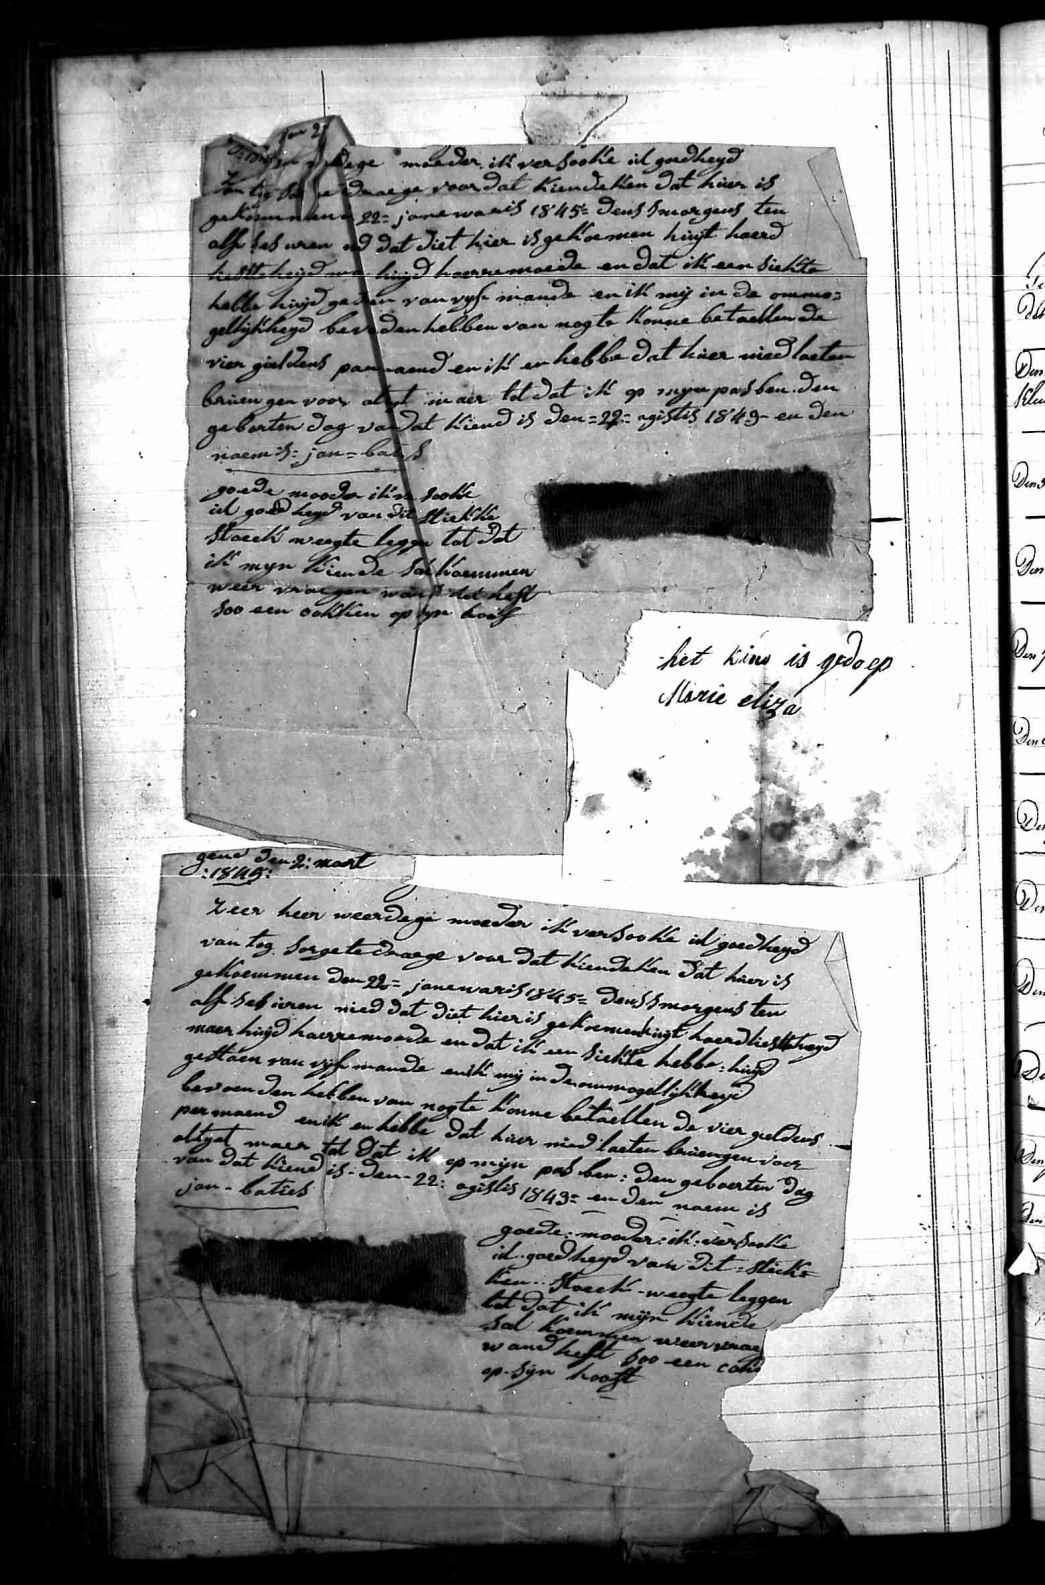 jan 2
moeder ik versooke ul goedheyd
draege voor dat kiendeken dat hier is
gekoemmen 22= janewaris 1845= dens smorgens ten
alf ses uren nd dat diet hier is gekoemen huyt haerd
huyd haerremoede en dat ik een siekte
hebbe huyd van vyf mande en ik mij in de ommo=
gellijkheyd bevoeden hebben van nogte konne betaellen de
vier guldens en ik en hebbe dat hier nied laeten
briengen voor altyt maer tot dat ik op myn pas ben den
geborten dag van dat kiend is den =22= agistis 1843= en den
naem is= jan= baties
goede mooder ik versooke
ul goedheyd van dit stiekke
stoeck weegte leggen tot dat
ik myn kiende sal koemmen
weer vraegen want het heft
soo een ookkien op syn hooft
het kind is gedoep
Marie eliza
gend den 2: maert
:1845:
zeer heer weerdege moeder ik versooke ul goedheyd
van tog sorge te draege voor dat kiendeken dat hier is
gekoemmen den 22= janewaris 1845= dens smorgens ten
alf ses uren nied dat diet hier is gekoemen huyt haerdliestheyd
maer huyd haerremoede en dat ik een siekte hebbe: huyd
gestaen van vyf mande en ik mij in de ommogellijkheyd
bevoenden hebben van nogte konne betaellen de vier guldens
per maend en ik en hebbe dat hier nied laeten briengen voor
altyt maer tot dat ik op mijn pas ben: den geboerten dag
van dat kiend is- den- 22: agistis 1843= en den naem is
jan- baties
goede: mooder: ik: versooke
ul goedheyd van dit= stiek=
kien.. stoeck- weegte leggen
tot dat ik mijn kiende
sal koemmen weer vraeg
wand heft soo een ook
op- sijn hooft